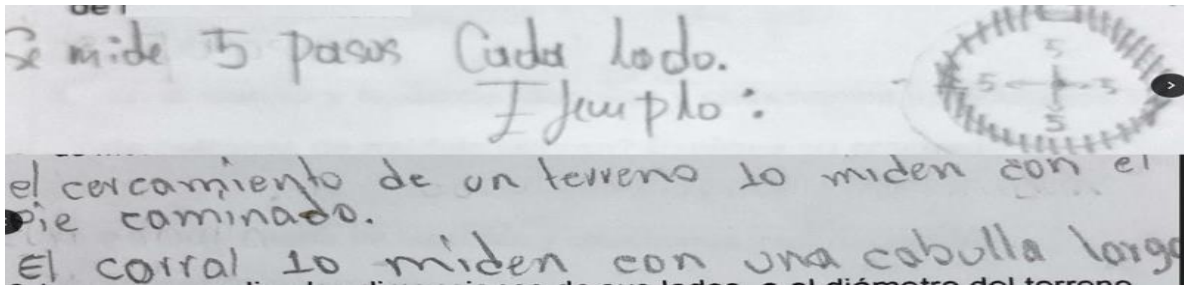 Se mide 5 pasos Cada lado.
Ejemplo:
5
5 5
5
el cercamiento de un terreno lo miden con el
pie caminado.
El corral lo miden con una cabulla larga